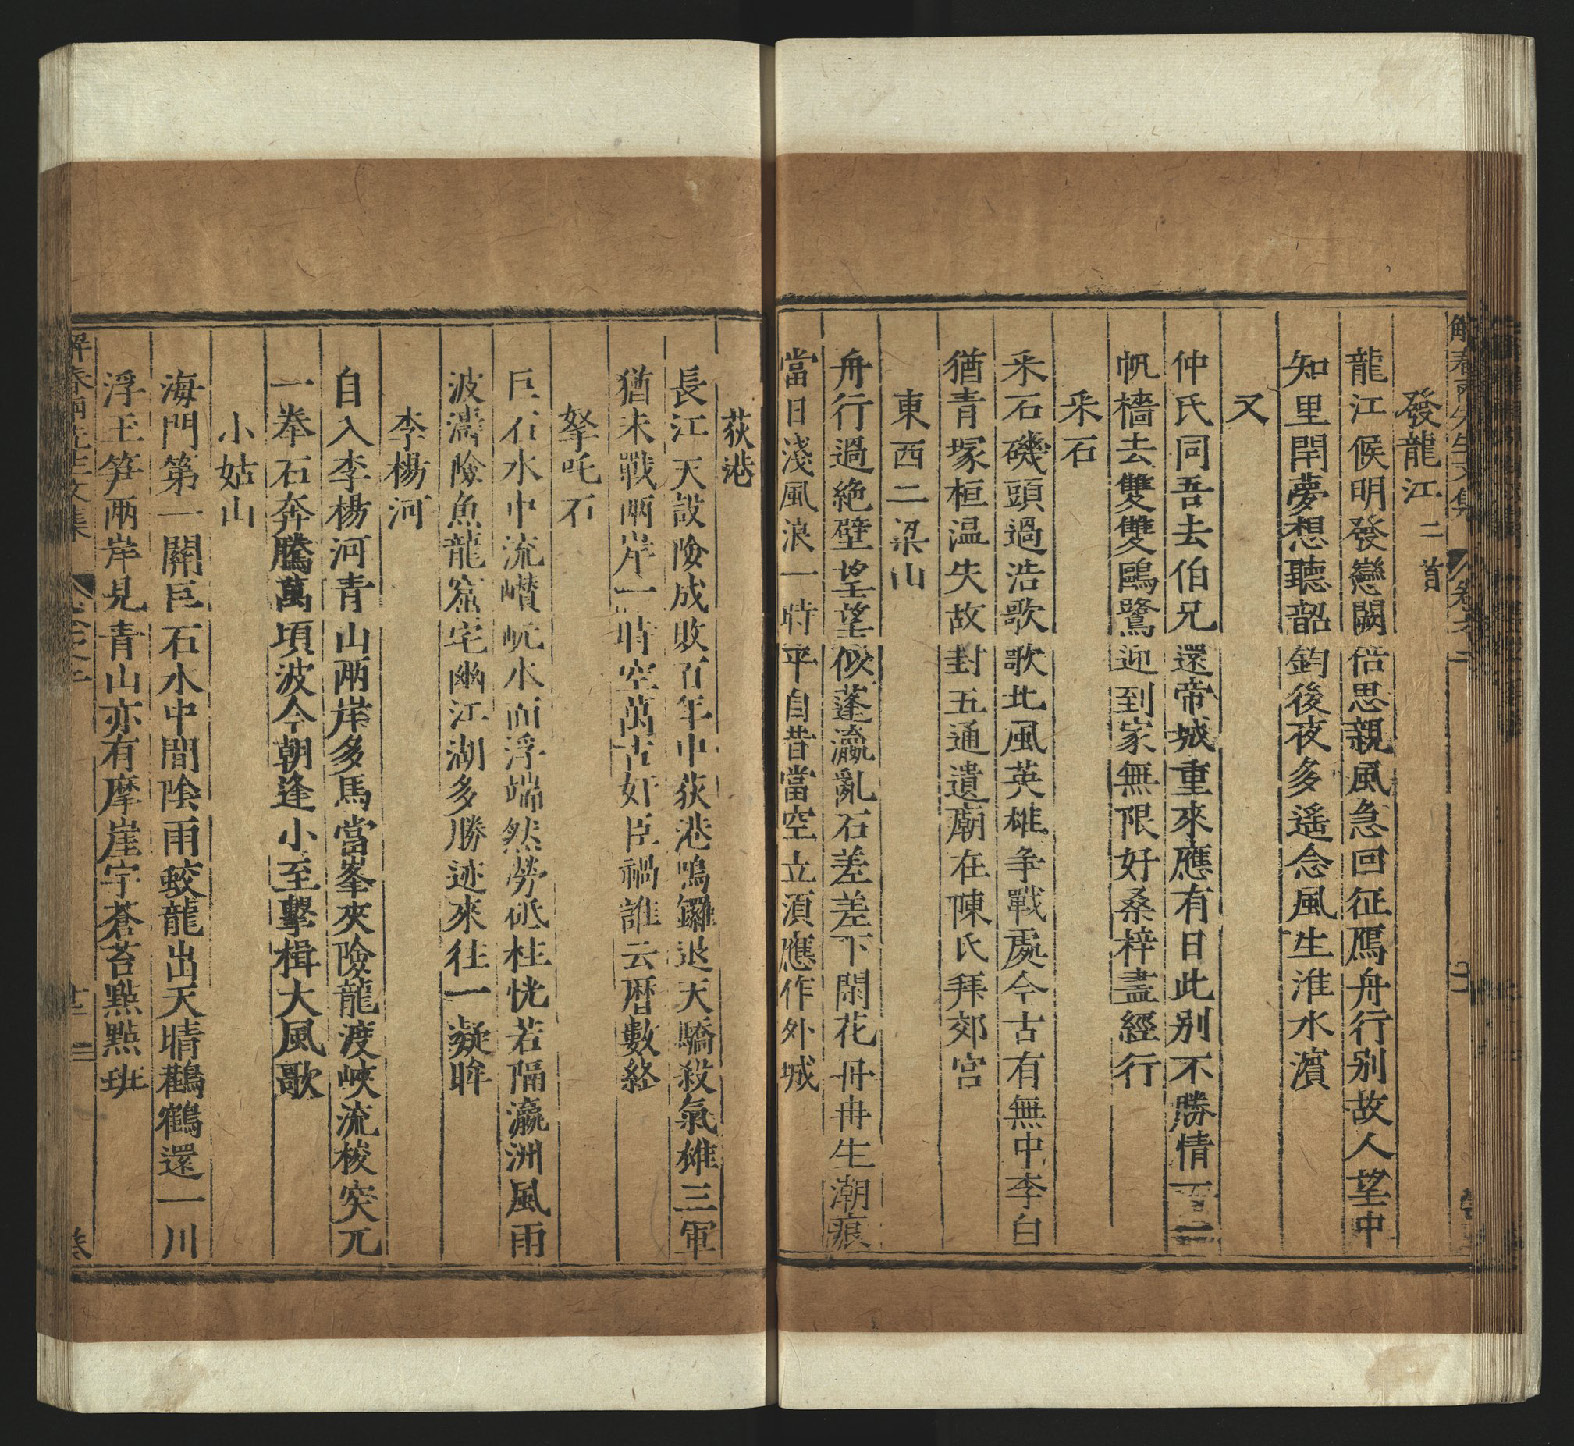 解春雨先生文集 卷之二
發龍江二首
龍江候明發戀闕倍思親風急回征鴈舟行别故人望中
知里閈夢想聽韶鈞後夜多遥念風生淮水濱
又
仲氏同吾去伯兄還帝城重來應有日此别不勝情一一
帆檣去雙雙鷗鷺迎到家無限好桑梓盡經行
采石
采石磯頭過浩歌歌北風英雄争戰處今古有無中李白
猶青塚桓温失故封五通遺廟在陳氏拜郊宫
東西二梁山
舟行過絶壁望望似蓬瀛亂石差差下閑花冉冉生潮痕
當日淺風浪一時平自昔當空立須應作外城
荻港
長江天設險成敗百年中荻港鳴鑼退天驕殺氣雄三軍
猶未戰兩岸一時空萬古奸臣禍誰云曆數終
拏吒石
巨石水中流巑岏水面浮端然勞砥柱恍若隔瀛洲風雨
波濤險魚龍窟宅幽江湖多勝迹來往一凝眸
李楊河
自入李楊河青山兩岸多馬當峯夾險龍渡峽流梭突兀
一拳石奔騰萬頃波今朝逢小至擊楫大風歌
小姑山
海門第一關巨石水中間陰雨蛟龍出天晴鸛鶴還一川
浮玉笋兩岸見青山亦有摩崖字蒼苔點點班
解春雨先生文集 卷之二 廿三